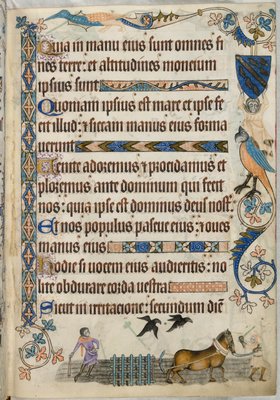 Quia in manu eius sunt omnes fi
nes terre: et altitudines moncium
ipsius sunt
Quoniam ipsius est mare et ipse fe
cit illud: et siccam manus eius forma
uerunt
Venite adoremus et procidamus et
ploremus ante dominum qui fecit
nos: quia ipse est dominus deus nost
Et nos populus pascue eius: et oues
manus eius
Hodie si uocem eius audieritis: no
lite obdurare corda uestra
Sicut in irritacione: secundum diē